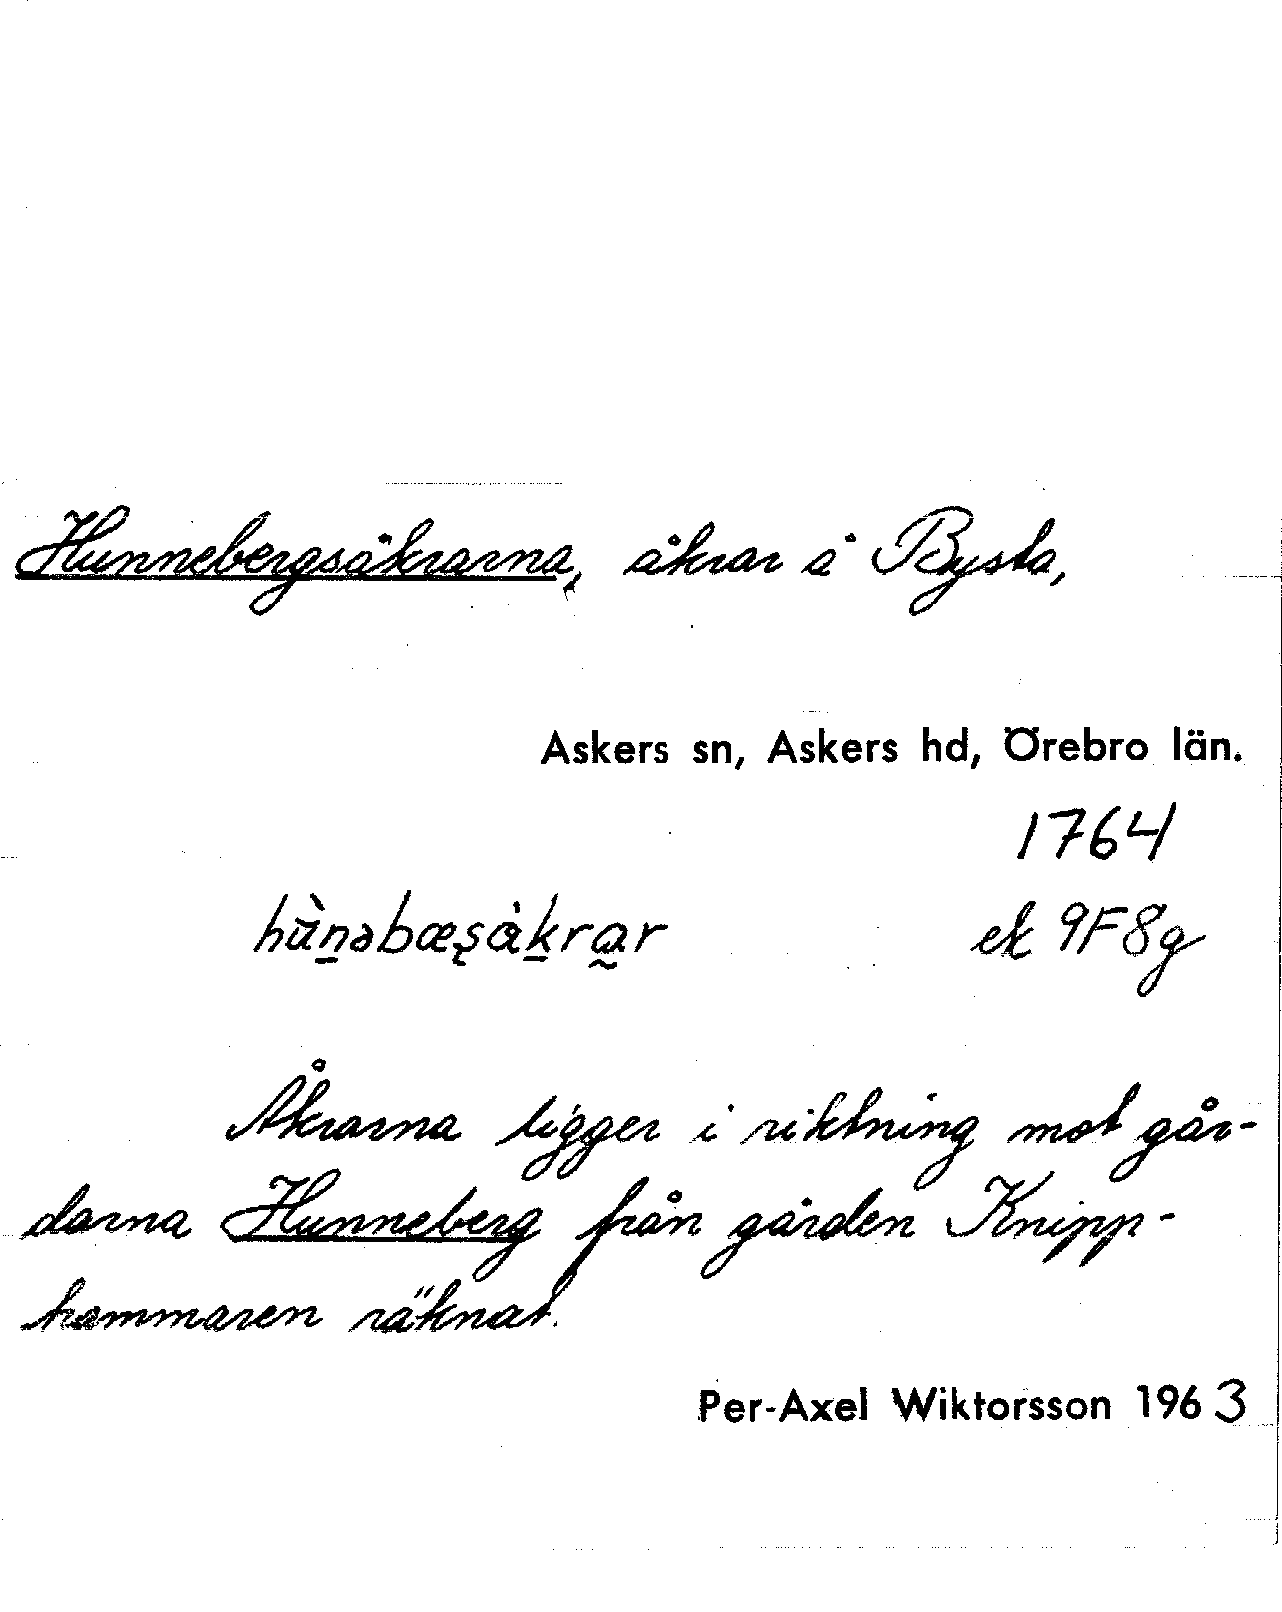 Hunnebergsåkrarna, åkrar å Bysta,
Askers sn, Askers hd, Örebro län.
1764
hùnəbæşàkrar ek 9F8g
Åkrarna ligger i riktning mot går-
darna Hunneberg från gården Knipp-
hammaren räknat.
Per-Axel Wiktorsson 1963